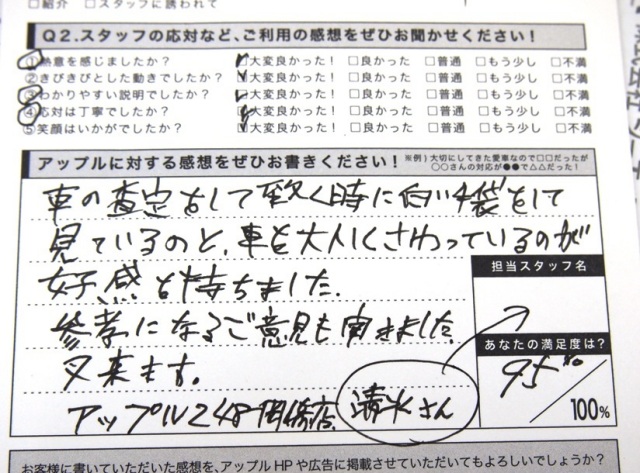 □紹介 □スタッフに誘われて
Q2.スタッフの応対など、ご利用の感想をぜひお聞かせください！
①熱意を感じましたか？ □大変良かった！ □良かった □普通 □もう少し □不満
②きびきびとした動きでしたか？ □大変良かった！ □良かった □普通 □もう少し □不満
③わかりやすい説明でしたか？ □大変良かった！ □良かった □普通 □もう少し □不満
④応対は丁寧でしたか？ □大変良かった！ □良かった □普通 □もう少し □不満
⑤笑顔はいかがでしたか？ □大変良かった！ □良かった □普通 □もう少し □不満
アップルに対する感想をぜひお書きください！ ※例）大切にしてきた愛車なので□□だったが
○○さんの対応が●●で△△だった！
車の査定をして頂く時に白い手袋をして
見ているのと、車を大切にさわっているのが
好感を持ちました。
参考になるご意見も聞きました。
又来ます。
アップル 店 清水さん
担当スタッフ名
あなたの満足度は？
95%
100%
お客様に書いていただいた感想を、アップルHPや広告に掲載させていただいてもよろしいでしょうか？